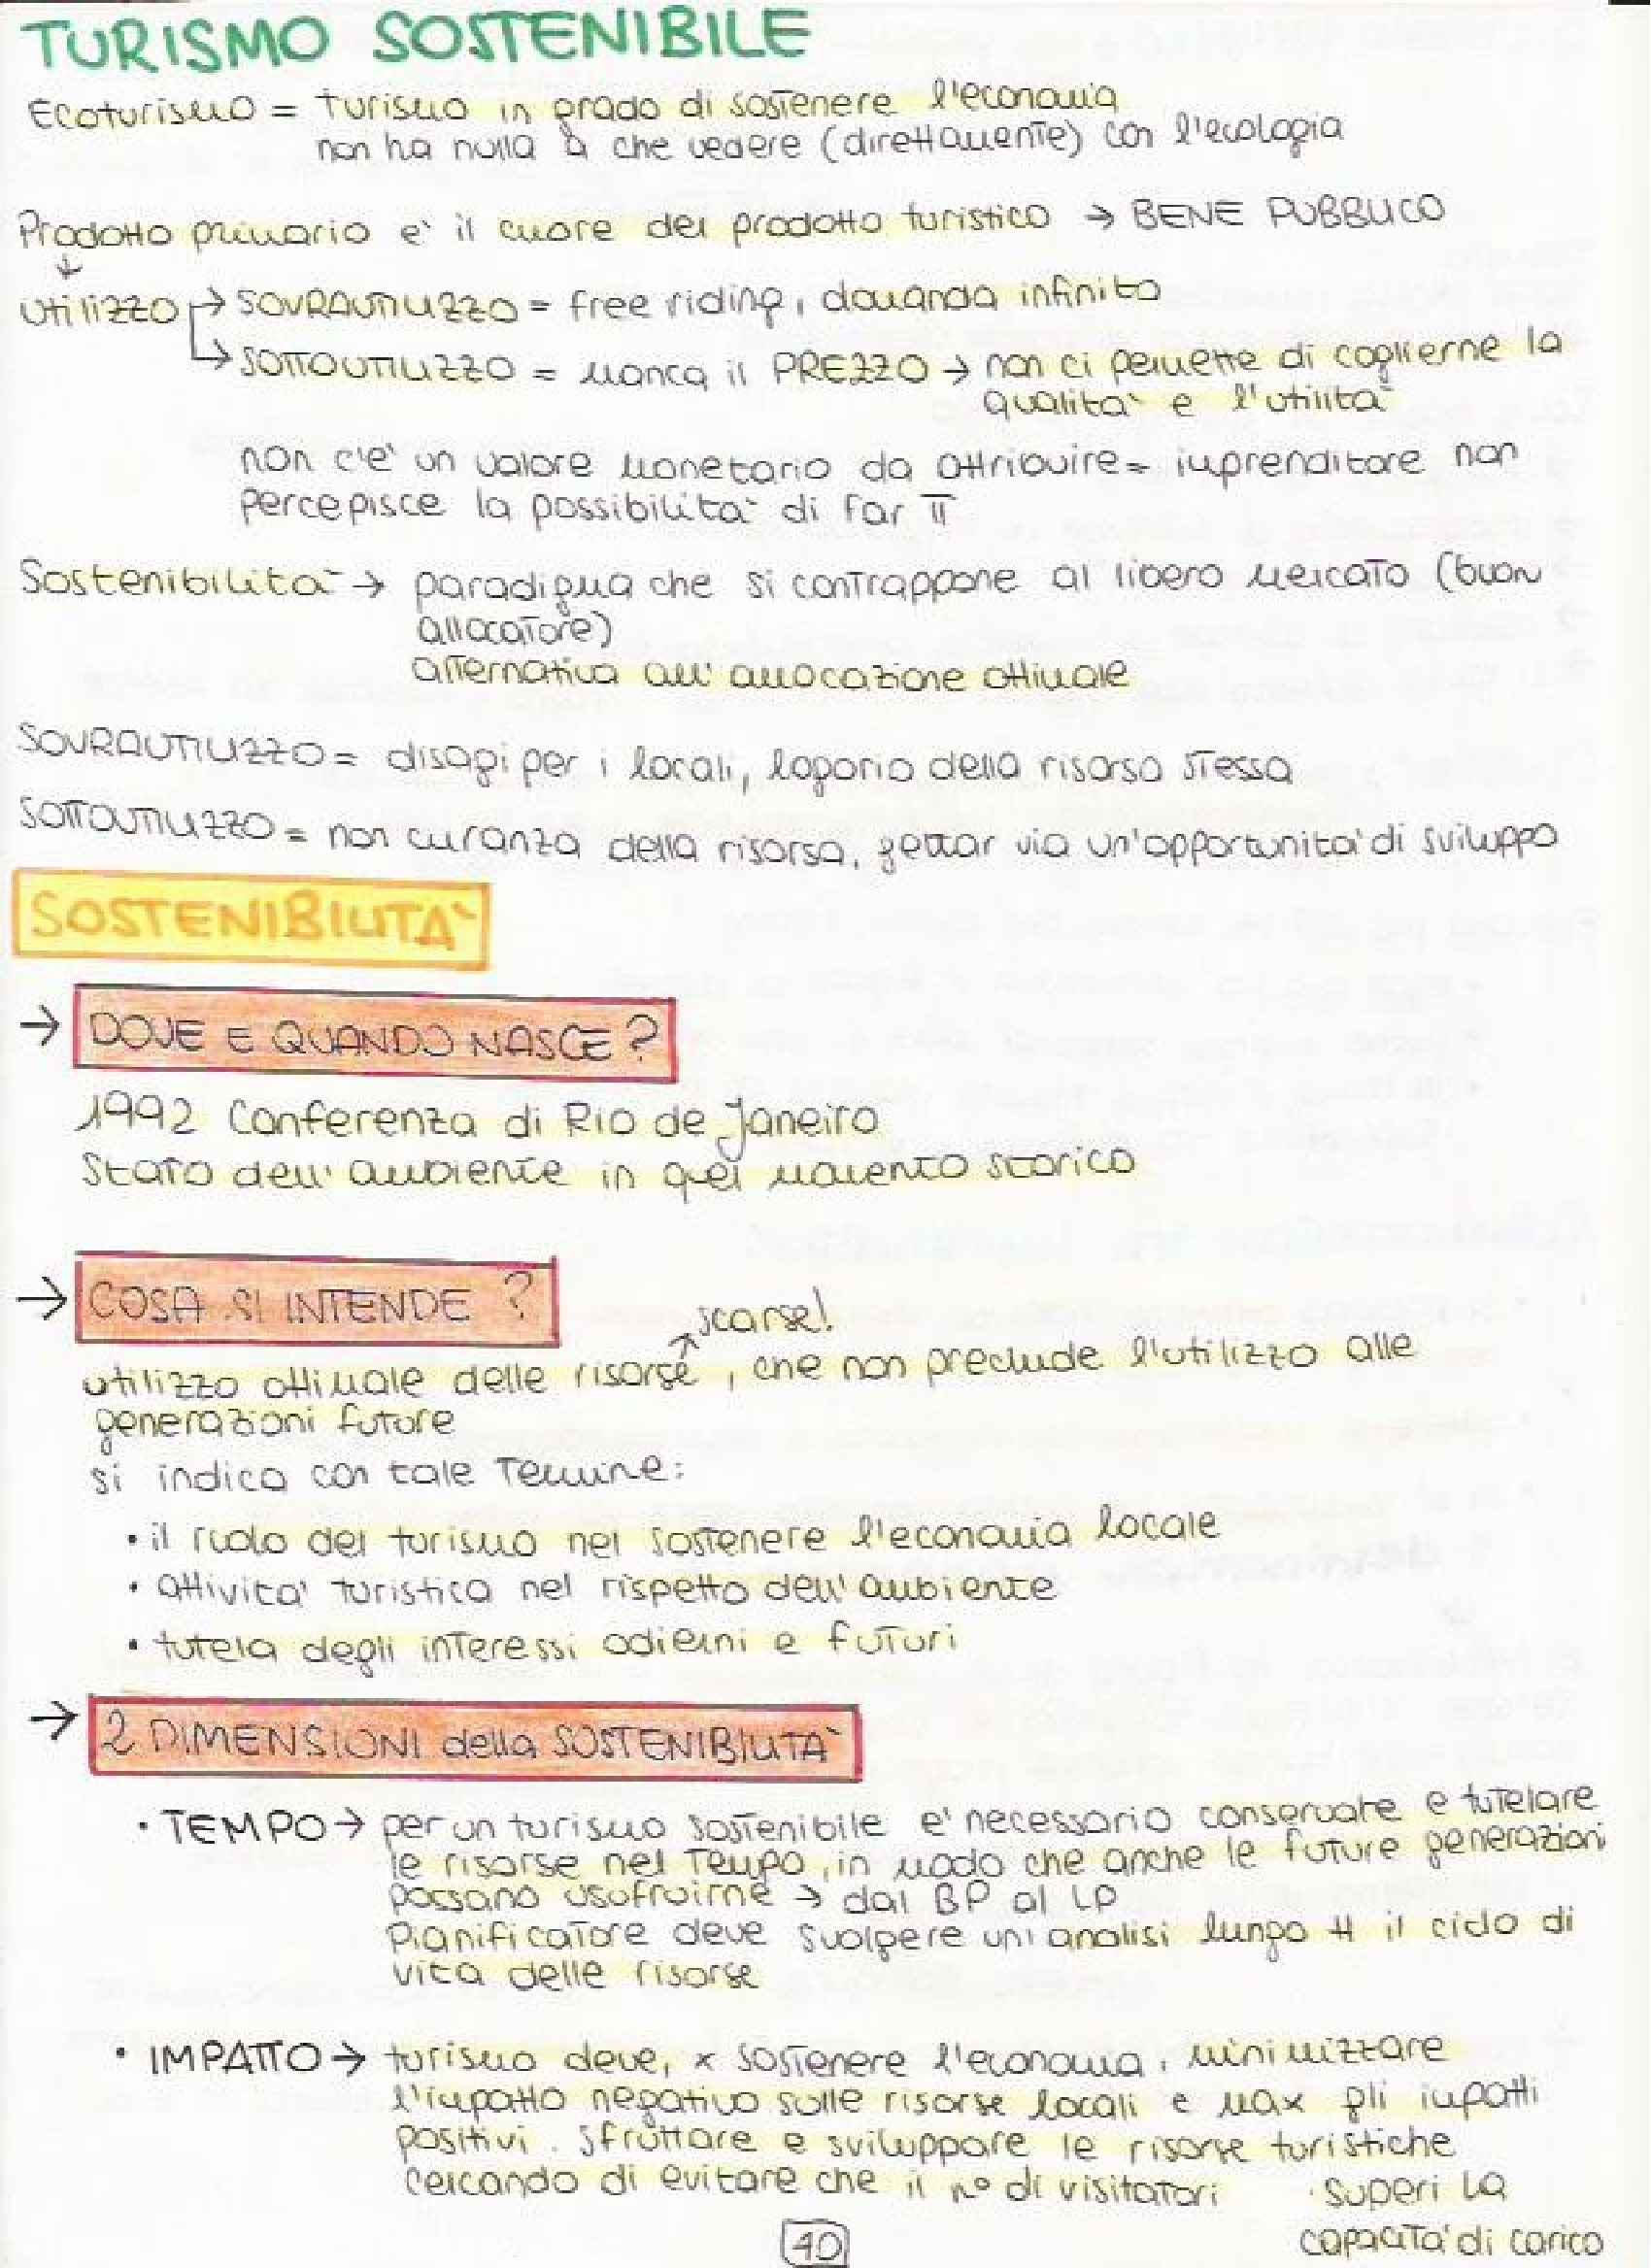 TURISMO SOSTENIBILE
Ecoturismo = turismo in grado di sostenere l'economia
non ha nulla a che vedere (direttamente) con l'ecologia
Prodotto primario e' il cuore del prodotto turistico → BENE PUBBLICO
↓
utilizzo → SOVRAUTILIZZO = free riding, domanda infinita
→ SOTTOUTILIZZO = manca il PREZZO → non ci permette di coglierne la
qualita' e l'utilita'
non c'e' un valore monetario da attribuire = imprenditore non
percepisce la possibilita' di far π
Sostenibilita' → paradigma che si contrappone al libero mercato (buon
allocatore)
alternativa all'allocazione ottimale
SOVRAUTILIZZO = disagi per i locali, logorio della risorsa stessa
SOTTOUTILIZZO = non curanza della risorsa, gettar via un'opportunita' di sviluppo
SOSTENIBILITA'
→ DOVE E QUANDO NASCE?
1992 Conferenza di Rio de Janeiro
Stato dell'ambiente in quel momento storico
→ COSA SI INTENDE ?
↗ scarse!
utilizzo ottimale delle risorse, che non preclude l'utilizzo alle
generazioni future
si indica con tale termine:
• il ruolo del turismo nel sostenere l'economia locale
• attivita' turistica nel rispetto dell'ambiente
• tutela degli interessi odierni e futuri
→ 2 DIMENSIONI della SOSTENIBILITA'
• TEMPO → per un turismo sostenibile e' necessario conservate e tutelare
le risorse nel tempo, in modo che anche le future generazioni
possano usufruirne → dal BP al LP
Pianificatore deve svolgere un'analisi lungo tt il ciclo di
vita delle risorse
• IMPATTO → turismo deve, x sostenere l'economia, minimizzare
l'impatto negativo sulle risorse locali e max gli impatti
positivi. Sfruttare e sviluppare le risorse turistiche
cercando di evitare che il n° di visitatori superi la
capacita' di carico
40